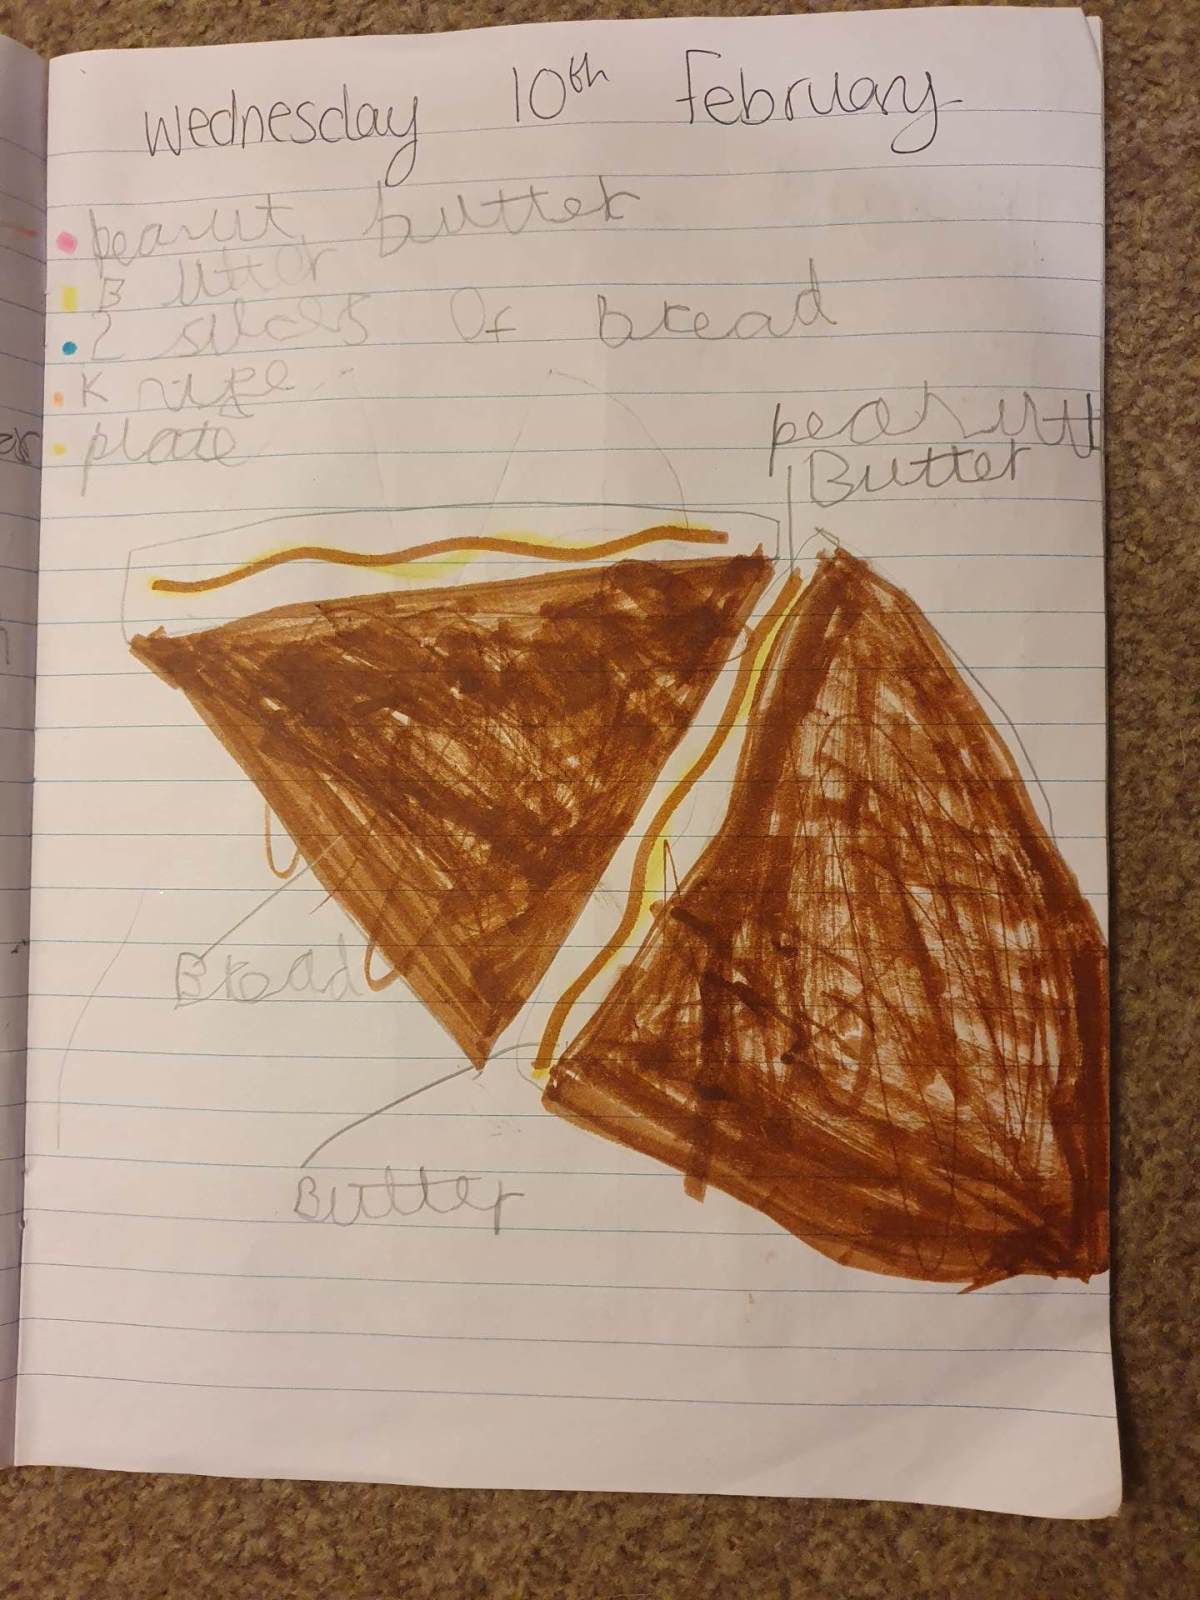 Wednesday 10th February
• peanut butter
Butter
• 2 slices of bread
• Knife
• plate
peanutt
Butter
Bread
Butter